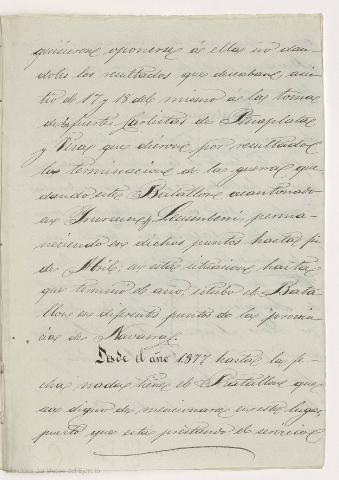 quisieron oponerse á ellas no dan-
doles los resultados que deseaban, asis
tió de 17 y 18 del mismo á las tomas
de fuertes Carlistas de Peñaplata
y Vera que dieron por resultado
la terminacion de la guerra que
dando este Batallon acantonado
en Irurzun y Lecumberri perma-
neciendo en dichos puntos hasta fin
de Abril; en esta situacion hasta
que terminó el año, estubo el Bata-
llon en diferentes puntos de la provin
cia de Navarra.
Desde el año 1877 hasta la fe-
cha nada tiene el Batallon que
sea digno de mencionarse en este lugar
puesto que está prestando el servicio